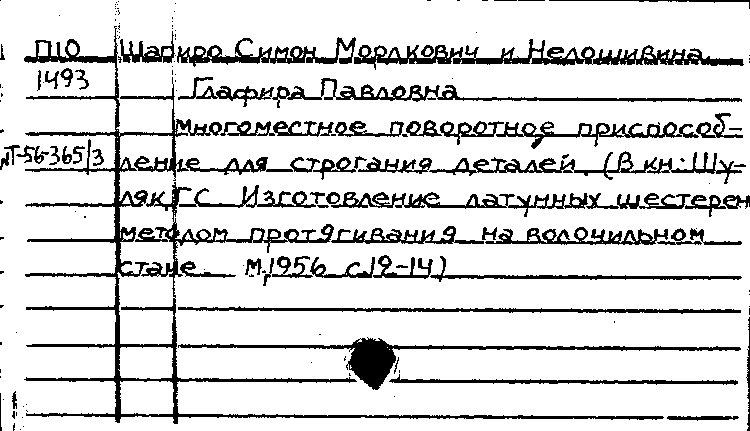 П10 Шапиро Симон Мордкович и Недошивина
1493 Глафира Павловна
Многоместное поворотное приспособ-
пТ-56-365/3 ление для строгания деталей. (В кн: Шу-
ляк, Г С Изготовление латунных шестерен
методом протягивания на волочильном
стане. М, 1956 с.12-14)